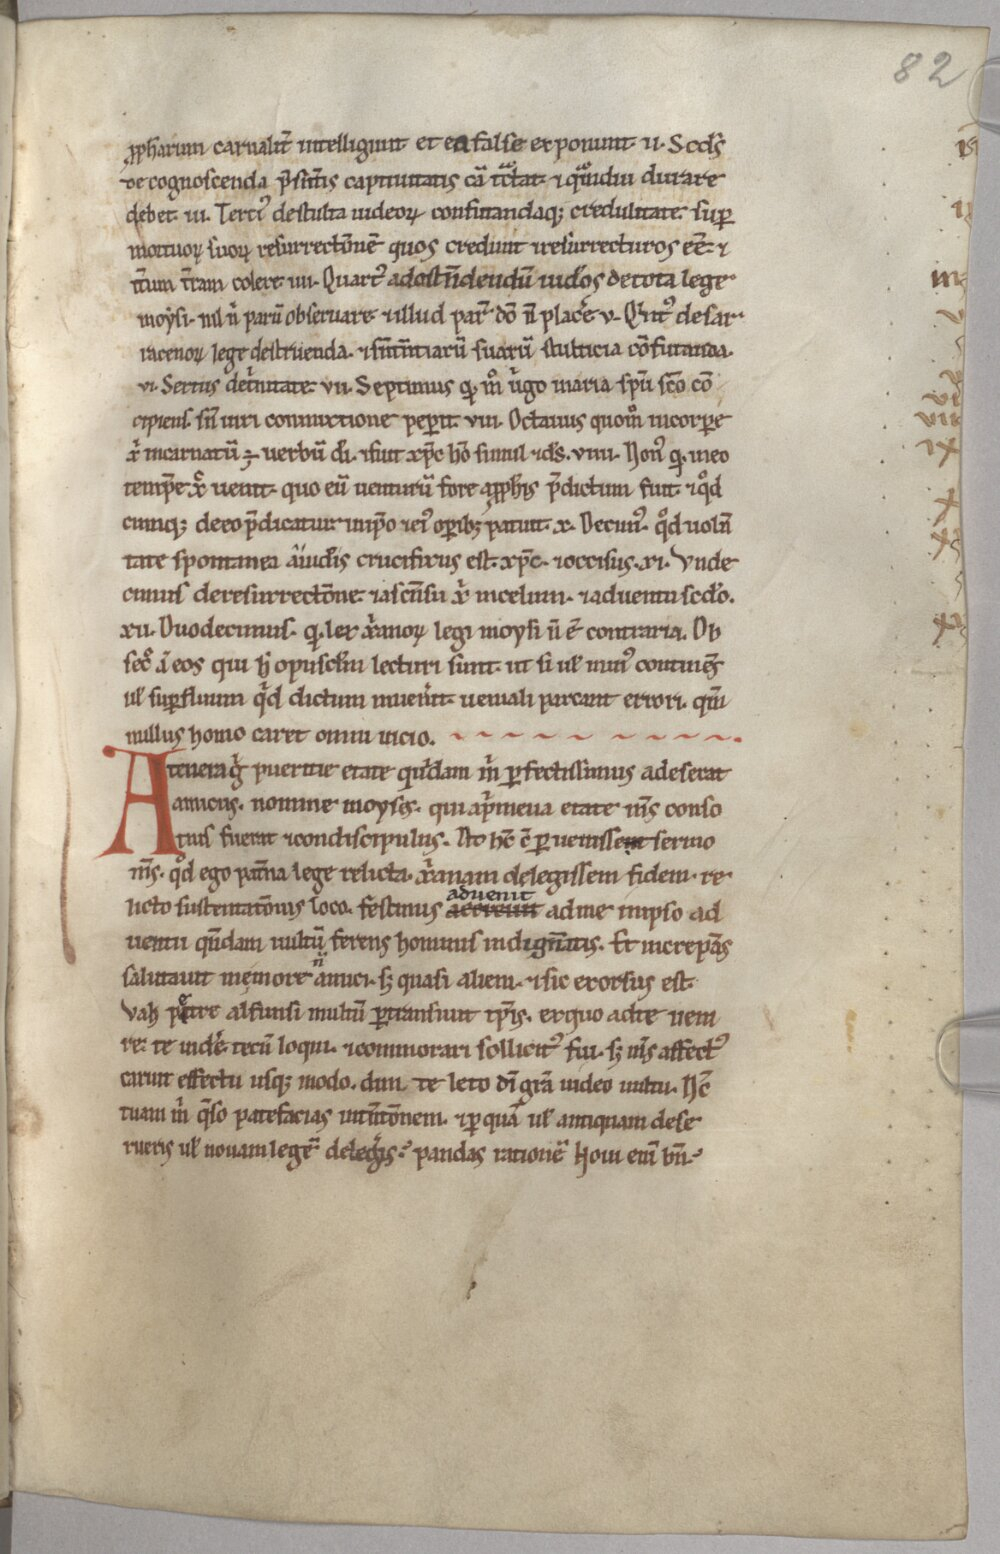 82
ꝓphetarum carnalit̃ intelligunt et ea false exponunt. ii. Scd̃s
de cognoscenda p̃sentis captiuitatis cã tᷓctat. ⁊ qᷓmdiu durare
debet. iii. Terciꝰ de stulta iudeoꝝ confutandaqꝫ credulitate. suꝑ
mortuoꝝ suoꝝ resurrectõnẽ quos credunt ⁊ resurrecturos eẽ. ⁊
it̃um t̃ram colere. iiii. Quartꝰ ad ostñdendũ iud̃os de tota lege
moysi. nil ñ parũ obseruare. ⁊ illud par̃ dõ ñ placẽ. v. Qͥntꝰ de sar
racenoꝝ lege destruenda. ⁊ sñtentiarũ suarũ stulticia cõfutanda.
vi. Sextus de tͥnitate. vii. Septimus qͥ. m̊ uͥgo maria sp̃u sc̃o cõ
cipiens. sñ uiri conmixtione peperit. viii. Octauus quom̊ in corpore
xͥ incarnatũ ÷ uerbũ dĩ. ⁊ fuit xp̃c hõ simul ⁊ ds̃. viiii. Nonꝰ qͥ. in eo
temp̃e xͥ uenit. quo eũ uenturũ fore a ꝓphis p̃dictum fuit. ⁊ qͦd
cumqꝫ de eo p̃dicatur in ip̃o ⁊ eiꝰ oꝑibꝫ patuit. x. Decimꝰ. qͦd uolũ
tate spontanea a iudẽis crucifixus est xp̃c. ⁊ occisus. xi. Vnde
cimus de resurrectõne. ⁊ ascẽnsu xͥ in celum. ⁊ aduentu sc̃do.
xii. Duodecimus. qͥ. lex xͥanoꝝ legi moysi ñ ẽ contraria. Ob
secͦ aũ eos qui h̃ opusculum lecturi sunt. ut si uł minꝰ continẽs
uł suꝑfluum qͥd dictum inuenerĩt. ueniali parcant errori. qm̃
nullus homo caret omni uicio.
A tenera igͥ puericie etate quͥdam m̃ ꝑfectissimus adeserat
amicus. nomine moyses. qui a pͥmeua etate mš conso
cius fuerat ⁊ condiscipulus. Ad hc̃ ẽ ꝑuenisset sermo
mš. qͦd ego pat̃na lege relicta. xͥanam delegissem fidem. re
licto sustentatõnis loco. festinus aduenit ad me in ipso ad
uentu quͥdam uultũ ferens hominis indignãtis. Et increpãs
salutauit me more ñ amici. sꝫ quasi alieni. ⁊ sic exorsus est.
Vah petre alfunsi multũ ꝑtransiuit tp̃is. ex quo ad te ueni
re. te uidẽ. tecũ loqui. ⁊ commorari sollicitꝰ fui. sꝫ mš affectꝰ
caruit effectu usqꝫ modo. dum te leto dĩ grã uideo uultu. Nc̃
tuam m̃ qͣso patefacias intẽntõnem. ⁊ ꝑ quã uł antiquam dese
rueris uł nouam legẽ delegͥis. pandas rationẽ. Noui eñi bñ.